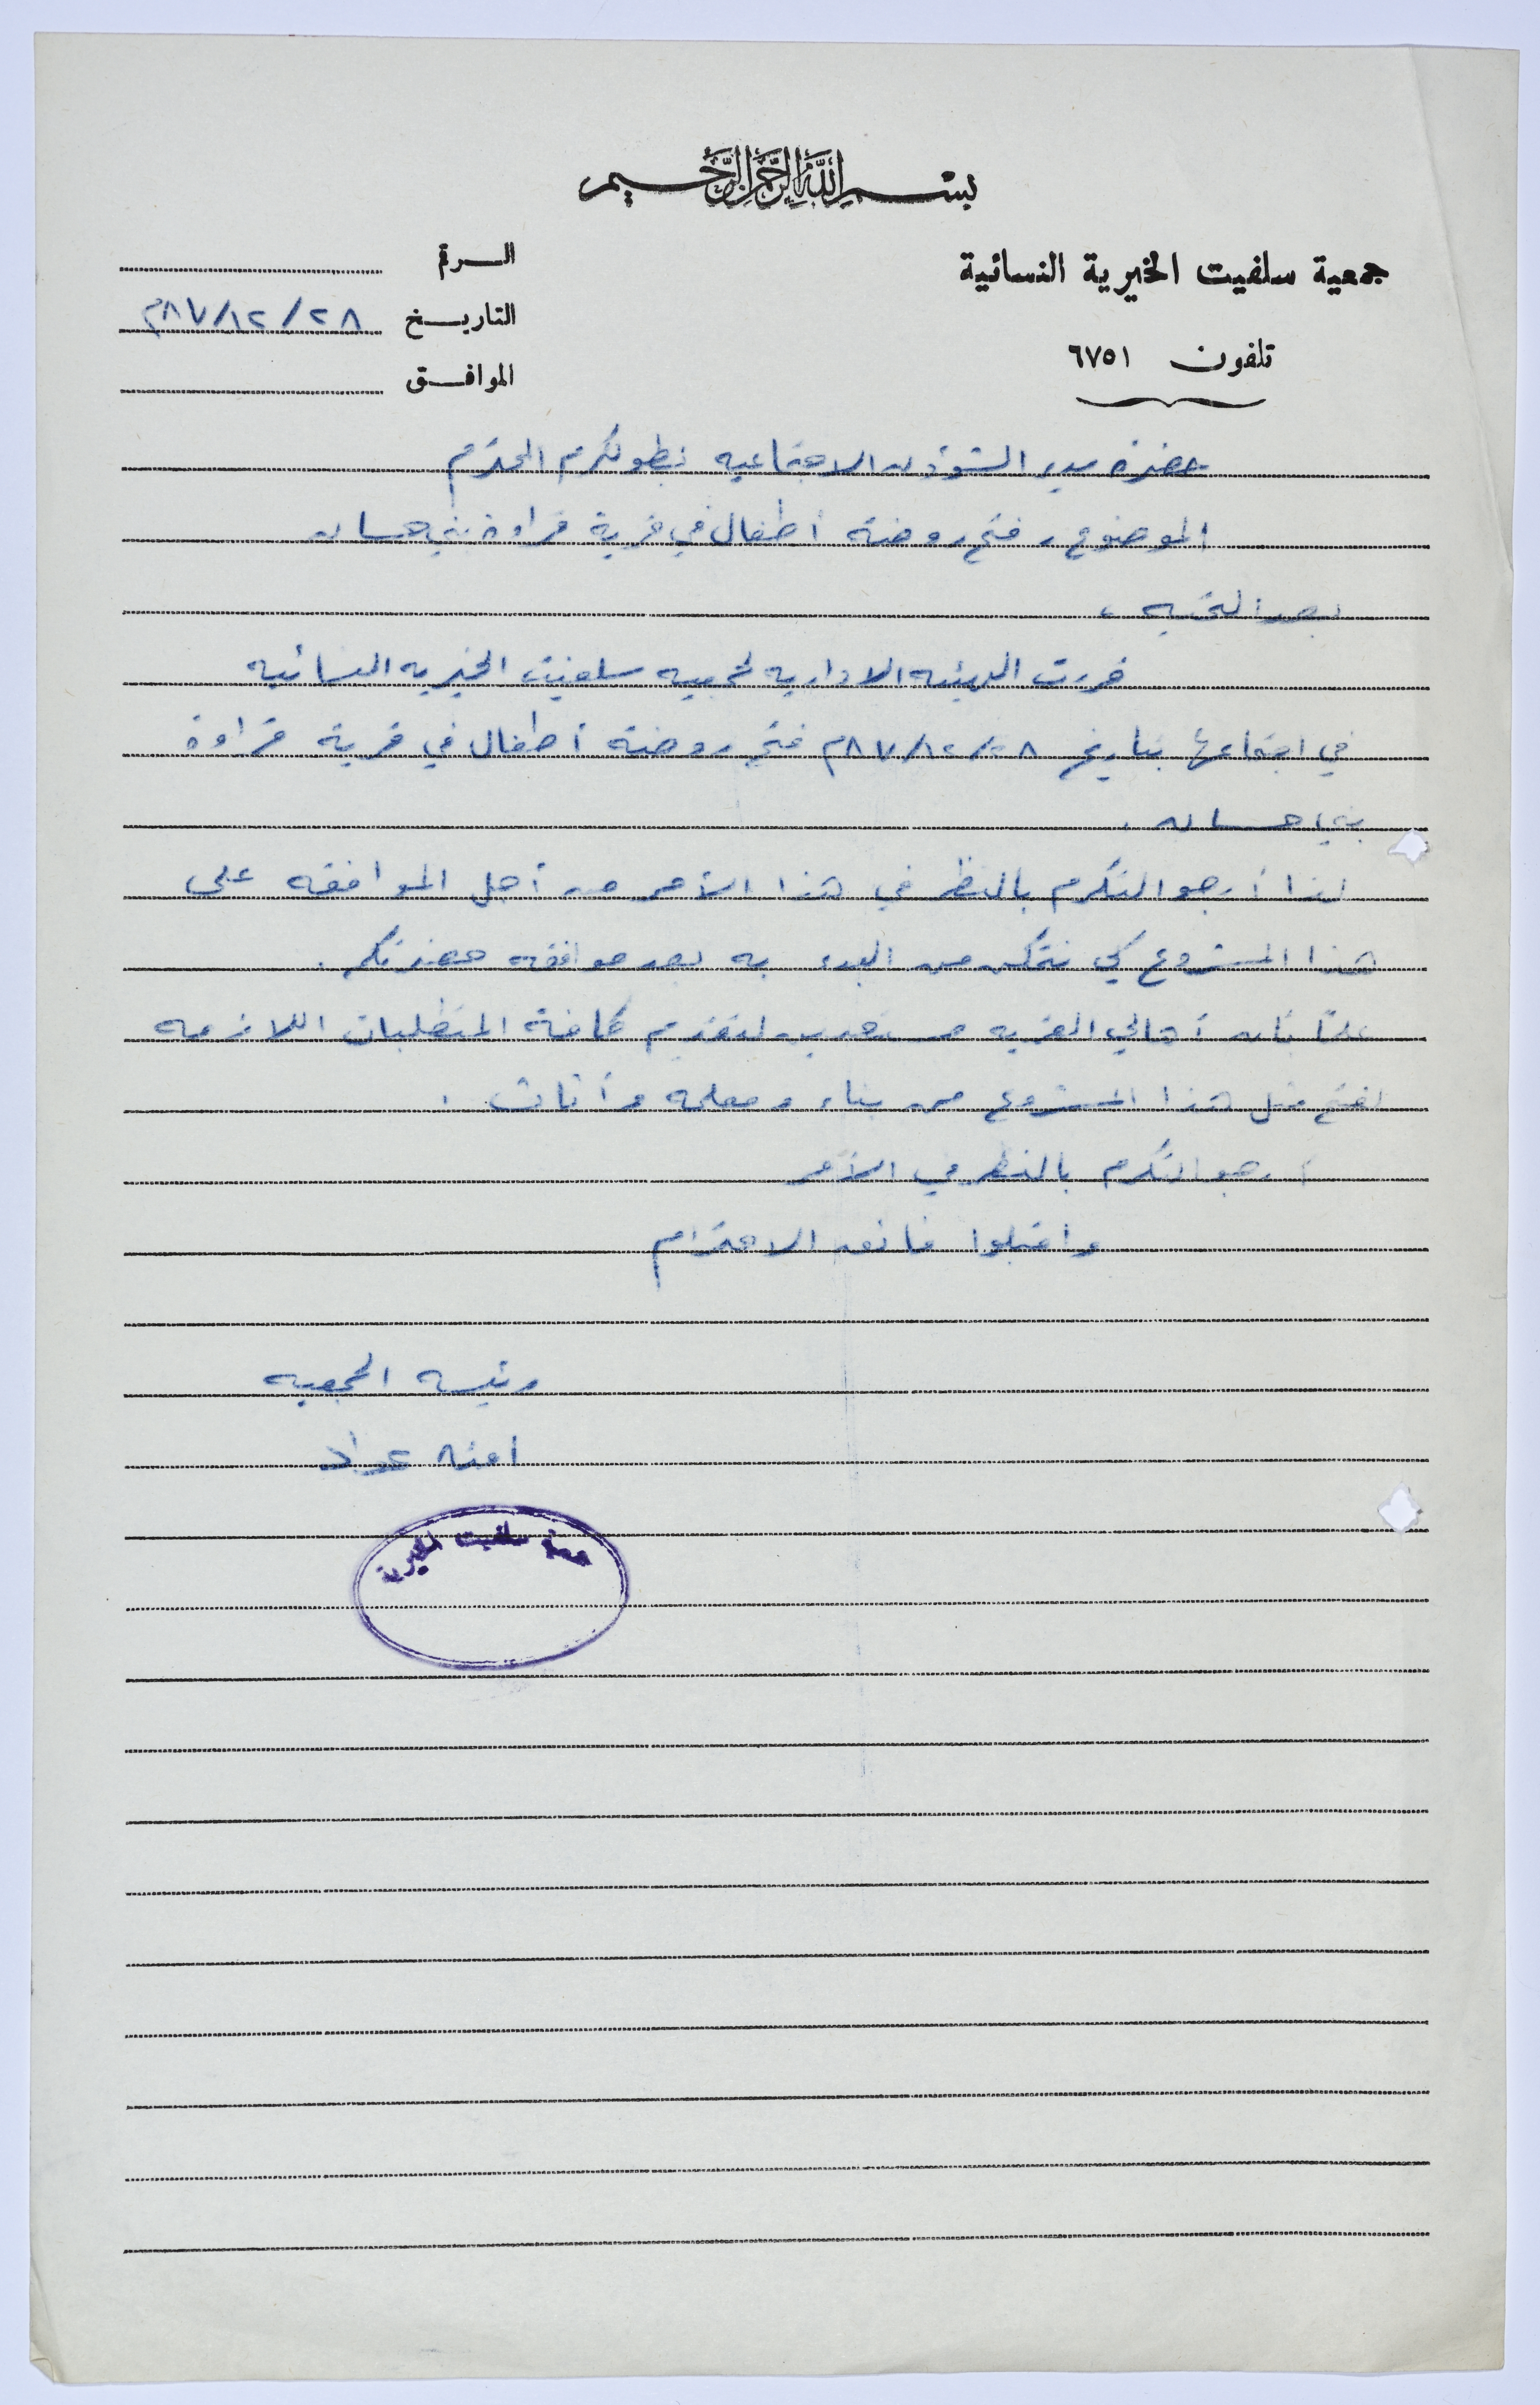 بسم الله الرحمن الرحيم
جمعية سلفيت الخيرية النسائية
تلفون ٦٧٥١
الرقم
التاريخ ٢٨/١٢/٨٧م
الموافق
حضرة مدير الشؤون الاجتماعيه بطولكرم المحترم
الموضوع : فتح روضة أطفال في قرية قراوة بني حسان
بعد التحيه ،
قررت الهيئه الاداريه لجمعيه سلفيت الخيريه النسائيه
في اجتماعها بتاريخ ٢٨/١٢/٨٧م فتح روضة أطفال في قرية قراوة
بني حسان .
لذا أرجو التكرم بالنظر في هذا الأمر من أجل الموافقه على
هذا المشروع كي نتمكن من البدء به بعد موافقه حضرتكم .
علماً بأن أهالي القريه مستعدين لتقديم كافة المتطلبات اللازمه
لفتح مثل هذا المشروع من بناء ومعلمه وأثاث .
أرجو التكرم بالنظر في الأمر
واقبلوا فائق الاحترام
رئيسه الجمعيه
امنه عواد
جمعية سلفيت الخيرية